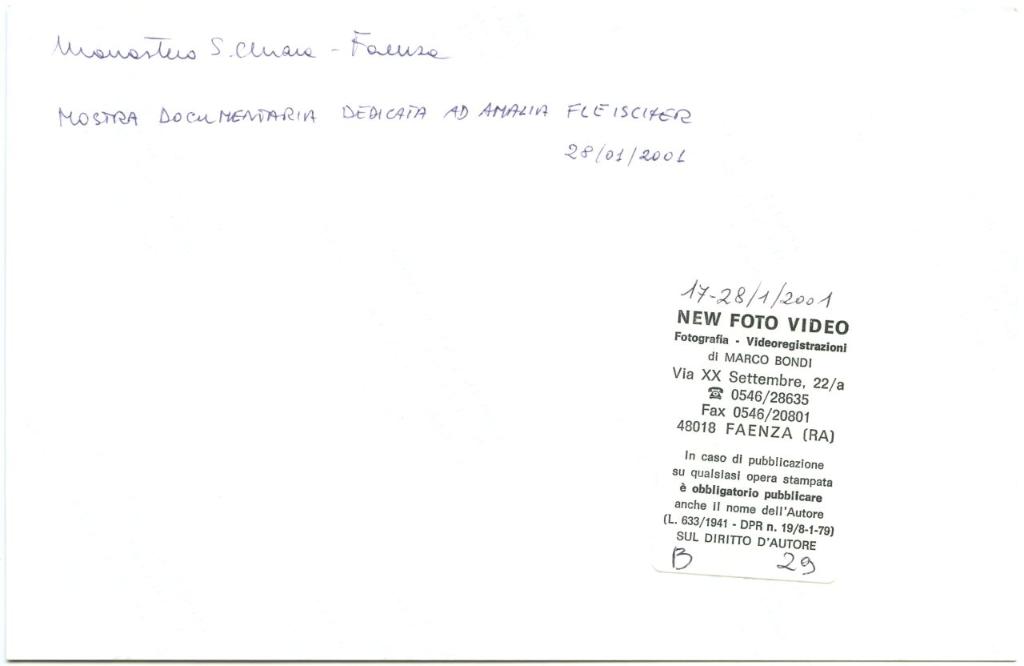 Monastero S. Chiara - Faenza
MOSTRA DOCUMENTARIA DEDICATA AD AMALIA FLEISCHER
28/01/2001
17-28/1/2001
NEW FOTO VIDEO
Fotografia - Videoregistrazioni
di MARCO BONDI
Via XX Settembre, 22/a
☎ 0546/28635
Fax 0546/20801
48018 FAENZA (RA)
In caso di pubblicazione
su qualsiasi opera stampata
è obbligatorio pubblicare
anche il nome dell'Autore
(L. 633/1941 - DPR n. 19/8-1-79)
SUL DIRITTO D'AUTORE
B 29